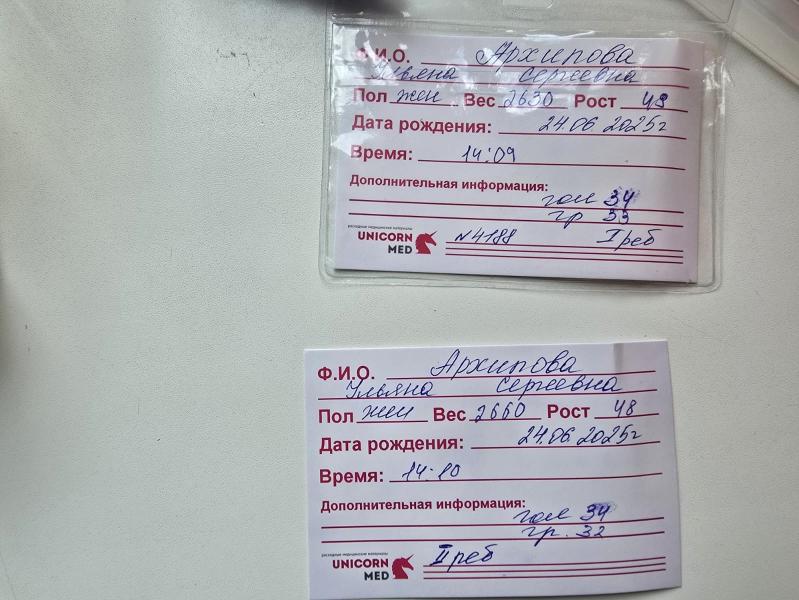 Ф.И.О. Архипова
Ульяна Сергеевна
Пол жен Вес 2630 Рост 48
Дата рождения: 24.06 2025г
Время: 14:09
Дополнительная информация:
гол 34
гр 33
расходные медицинские материалы
UNICORN MED
N4188 I реб
Ф.И.О. Архипова
Ульяна Сергеевна
Пол жен Вес 2660 Рост 48
Дата рождения: 24.06. 2025г
Время: 14:10
Дополнительная информация:
гол 34
гр. 32
расходные медицинские материалы
UNICORN MED
II реб